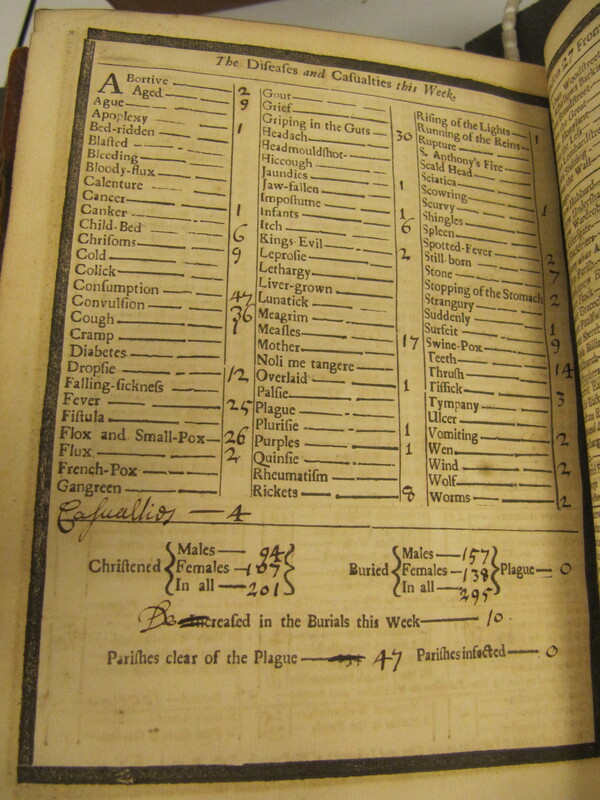 The Diseases and Casualties this Week.
Abortive 2
Aged 9
Ague
Apoplexy 1
Bed-ridden
Blasted
Bleeding
Bloody-flux
Calenture
Cancer 1
Canker
Child-Bed 6
Chrisoms 9
Cold
Colick
Consumption 47
Convulsion 36
Cough 1
Cramp
Diabetes
Dropsie 12
Falling-sickness
Fever 25
Fistula
Flox and Small-Pox 26
Flux 2
French-Pox
Gangreen
Casualties — 4
Gout
Grief
Griping in the Guts 30
Headach
Headmouldshot
Hiccough
Jaundies 1
Jaw-fallen
Impostume 1
Infants 6
Itch
Kings Evil 2
Leprosie
Lethargy
Liver-grown
Lunatick
Meagrim
Measles 17
Mother
Noli me tangere
Overlaid 1
Palsie
Plague
Plurisie 1
Purples 1
Quinsie
Rheumatism
Rickets 8
Rising of the Lights 1
Running of the Reins
Rupture
S. Anthony's Fire
Scald Head
Sciatica
Scowring 1
Scurvy
Shingles
Spleen
Spotted-Fever 2
Still-born 7
Stone
Stopping of the Stomach 2
Strangury
Suddenly 1
Surfeit 9
Swine-Pox
Teeth 14
Thrush
Tissick 3
Tympany
Ulcer
Vomiting 2
Wen
Wind 2
Wolf
Worms 2
Christened { Males — 94
Females — 107
In all — 201 }
Buried { Males — 157
Females — 138
In all — 295 } Plague — 0
Decreased in the Burials this Week — 10.
Parishes clear of the Plague — 47 Parishes infected — 0